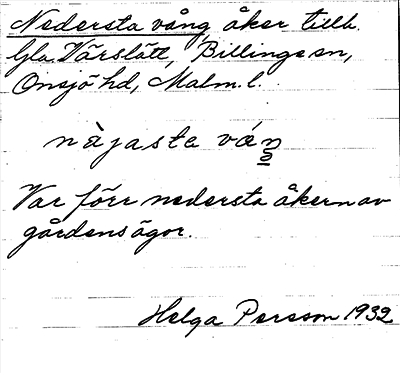 Nedersta vång åker tillh.
Gla. Vårslätt, Billinge sn,
Onsjö hd, Malm. l.
nàjasta váŋ
Var förr nedersta åkern av
gårdens ägor.
Helga Persson 1932